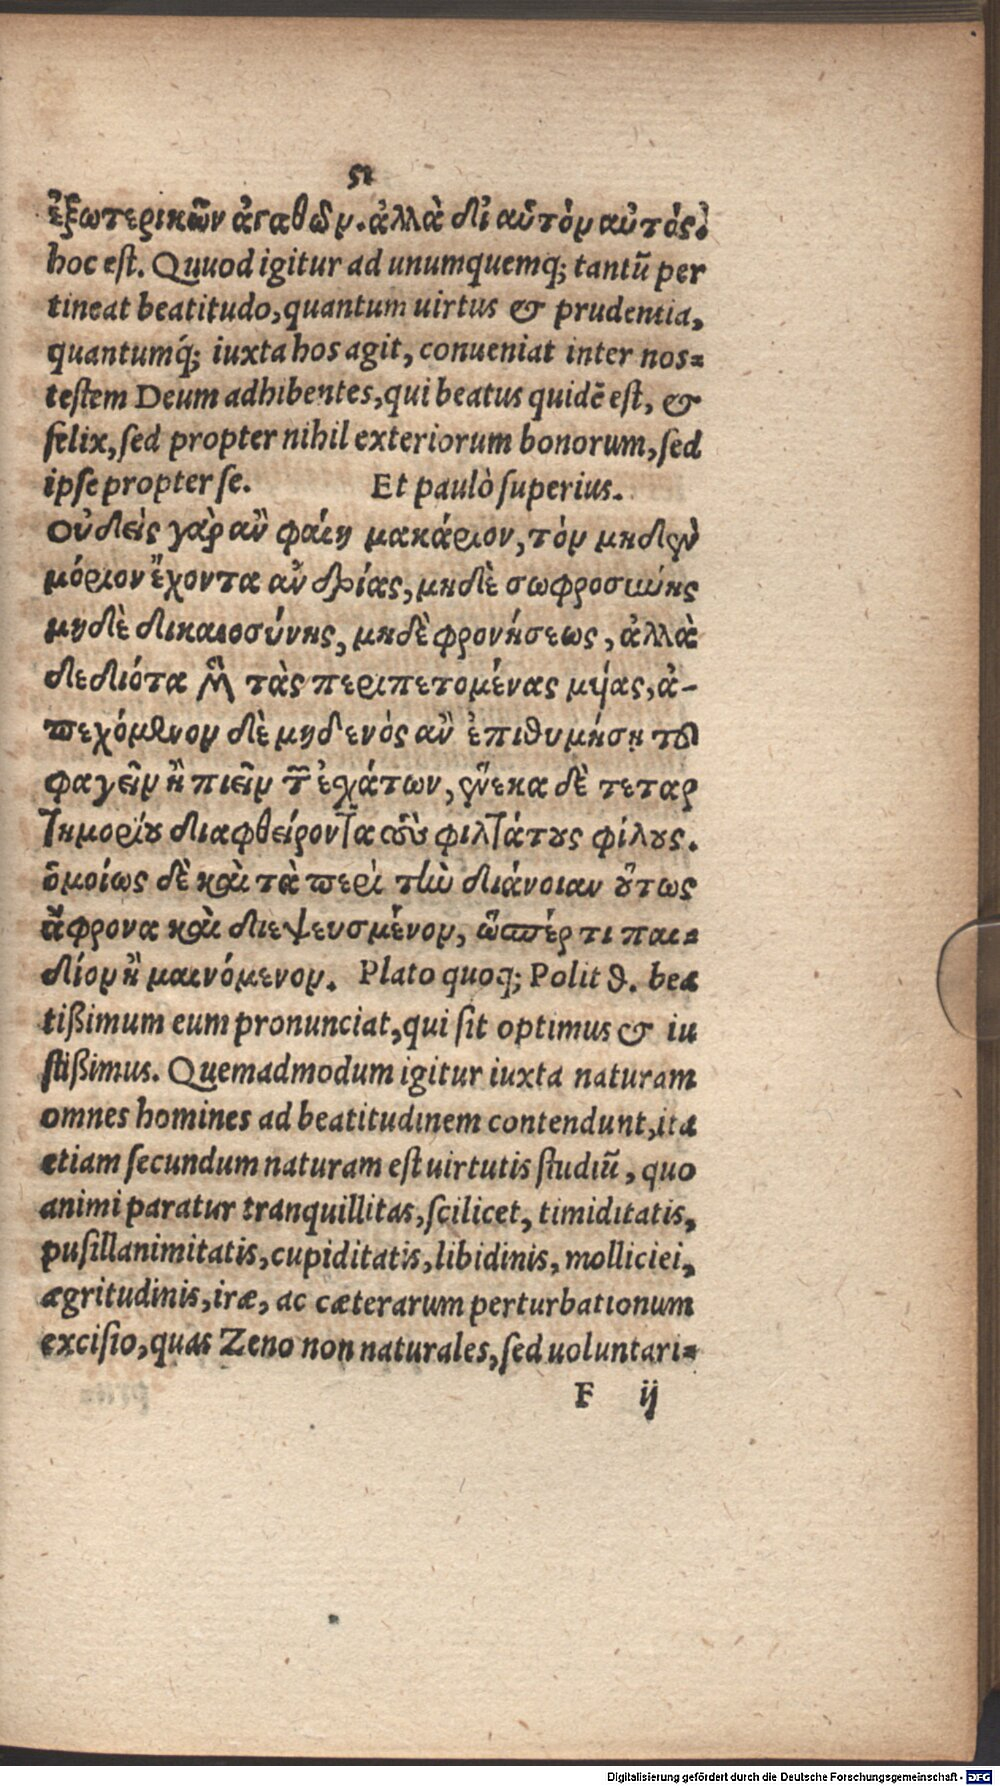 51
ἐξωτερικῶν ἀγαθῶν. ἀλλὰ δι᾽ αὑτὸν αὐτός.
hoc eſt. Quod igitur ad unumquemq; tantū per
tineat beatitudo, quantum uirtus & prudentia,
quantumq́; iuxta hos agit, conueniat inter nos=
teſtem Deum adhibentes, qui beatus quidē eſt, &
felix, ſed propter nihil exteriorum bonorum, ſed
ipſe propter ſe. Et paulò ſuperius.
Οὐδεὶς γὰρ ἂν φαίη μακάριον, τὸν μηδὲν
μόριον ἔχοντα ἀνδρίας, μηδὲ σωφροσύνης
μηδὲ δικαιοσύνης, μηδὲ φρονήσεως, ἀλλὰ
δεδιότα μὲν τὰς περιπετομένας μυίας, ἀ-
πεχόμενον δὲ μηδενός ἂν ἐπιθυμήσῃ τοῦ
φαγεῖν ἢ πιεῖν τῶν ἐχάτων, ἕνεκα δὲ τεταρ
τημορίου διαφθείροντα τοὺς φιλτάτους φίλους.
ὁμοίως δὲ καὶ τὰ περὶ τὴν διάνοιαν οὕτως
ἄφρονα καὶ διεψευσμένον, ὥσπέρ τι παι=
δίον ἢ μαινόμενον. Plato quoq; Polit ϑ. bea
tißimum eum pronunciat, qui ſit optimus & iu
ſtißimus. Quemadmodum igitur iuxta naturam
omnes homines ad beatitudinem contendunt, ita
etiam ſecundum naturam eſt uirtutis ſtudiū, quo
animi paratur tranquillitas, ſcilicet, timiditatis,
puſillanimitatis, cupiditatis, libidinis, molliciei,
ægritudinis, iræ, ac cæterarum perturbationum
exciſio, quas Zeno non naturales, ſed uoluntari=
F ij
Digitalisierung gefördert durch die Deutsche Forschungsgemeinschaft - DFG